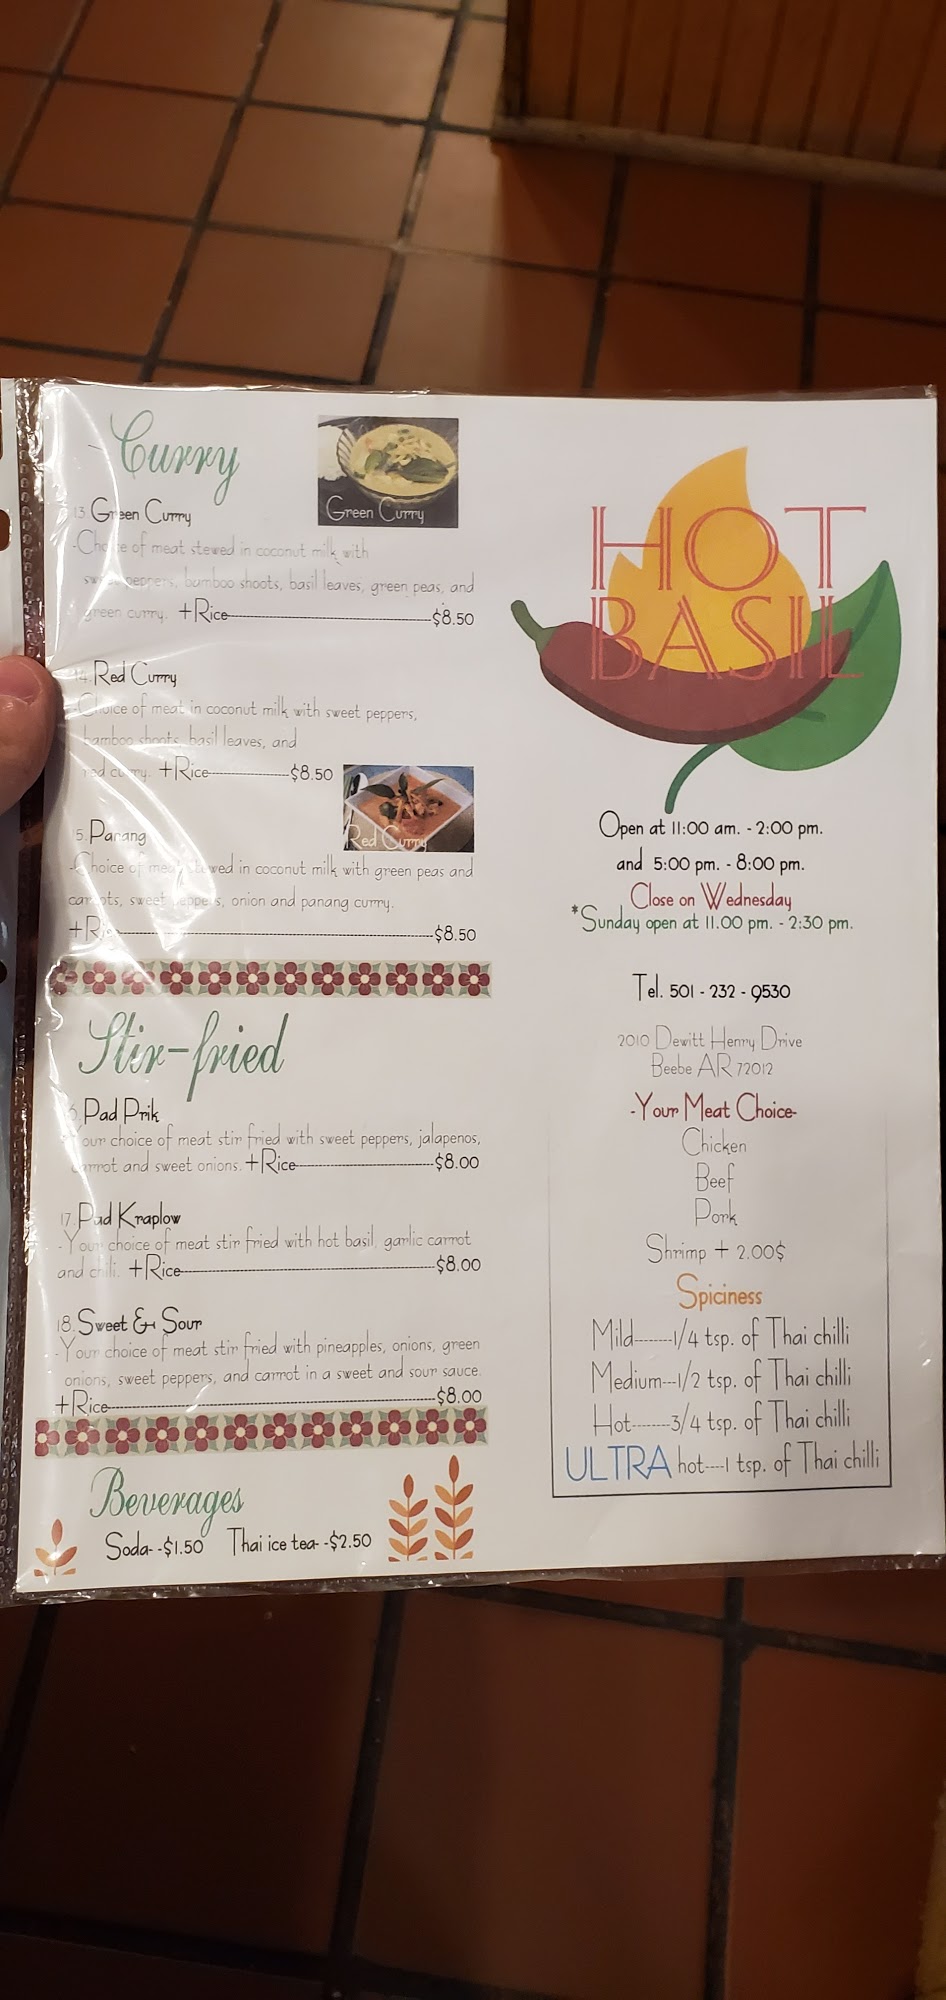 Curry
Green Curry
13. Green Curry
-Choice of meat stewed in coconut milk with
sweet peppers, bamboo shoots, basil leaves, green peas, and
green curry. +Rice---$8.50
14. Red Curry
-Choice of meat in coconut milk with sweet peppers,
bamboo shoots, basil leaves, and
red curry. +Rice---$8.50
Red Curry
5. Panang
-Choice of meat stewed in coconut milk with green peas and
carrots, sweet peppers, onion and panang curry.
+Rice---$8.50
Stir-fried
6. Pad Prik
Your choice of meat stir fried with sweet peppers, jalapenos,
carrot and sweet onions. +Rice---$8.00
17. Pad Kraplow
-Your choice of meat stir fried with hot basil, garlic carrot
and chili. +Rice---$8.00
18. Sweet & Sour
-Your choice of meat stir fried with pineapples, onions, green
onions, sweet peppers, and carrot in a sweet and sour sauce.
+Rice---$8.00
Beverages
Soda--$1.50 Thai ice tea--$2.50
HOT
BASIL
Open at 11:00 am. - 2:00 pm.
and 5:00 pm. - 8:00 pm.
Close on Wednesday
*Sunday open at 11.00 pm. - 2:30 pm.
Tel. 501 - 232 - 9530
2010 Dewitt Henry Drive
Beebe AR 72012
-Your Meat Choice-
Chicken
Beef
Pork
Shrimp + 2.00$
Spiciness
Mild-------1/4 tsp. of Thai chilli
Medium---1/2 tsp. of Thai chilli
Hot-------3/4 tsp. of Thai chilli
ULTRA hot----1 tsp. of Thai chilli